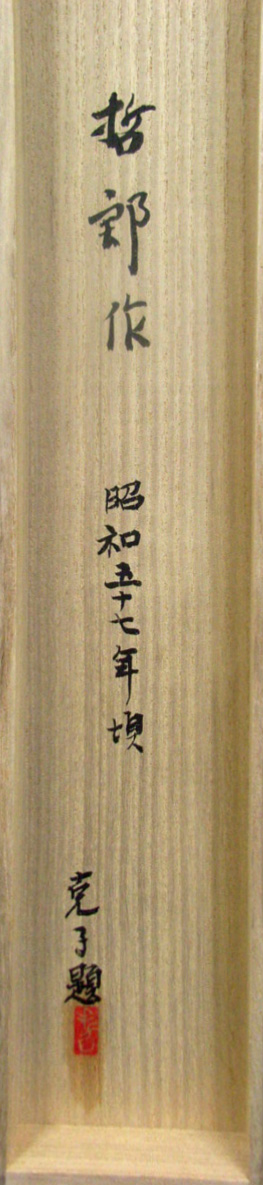 哲郎作
昭和五十七年頃
克子題